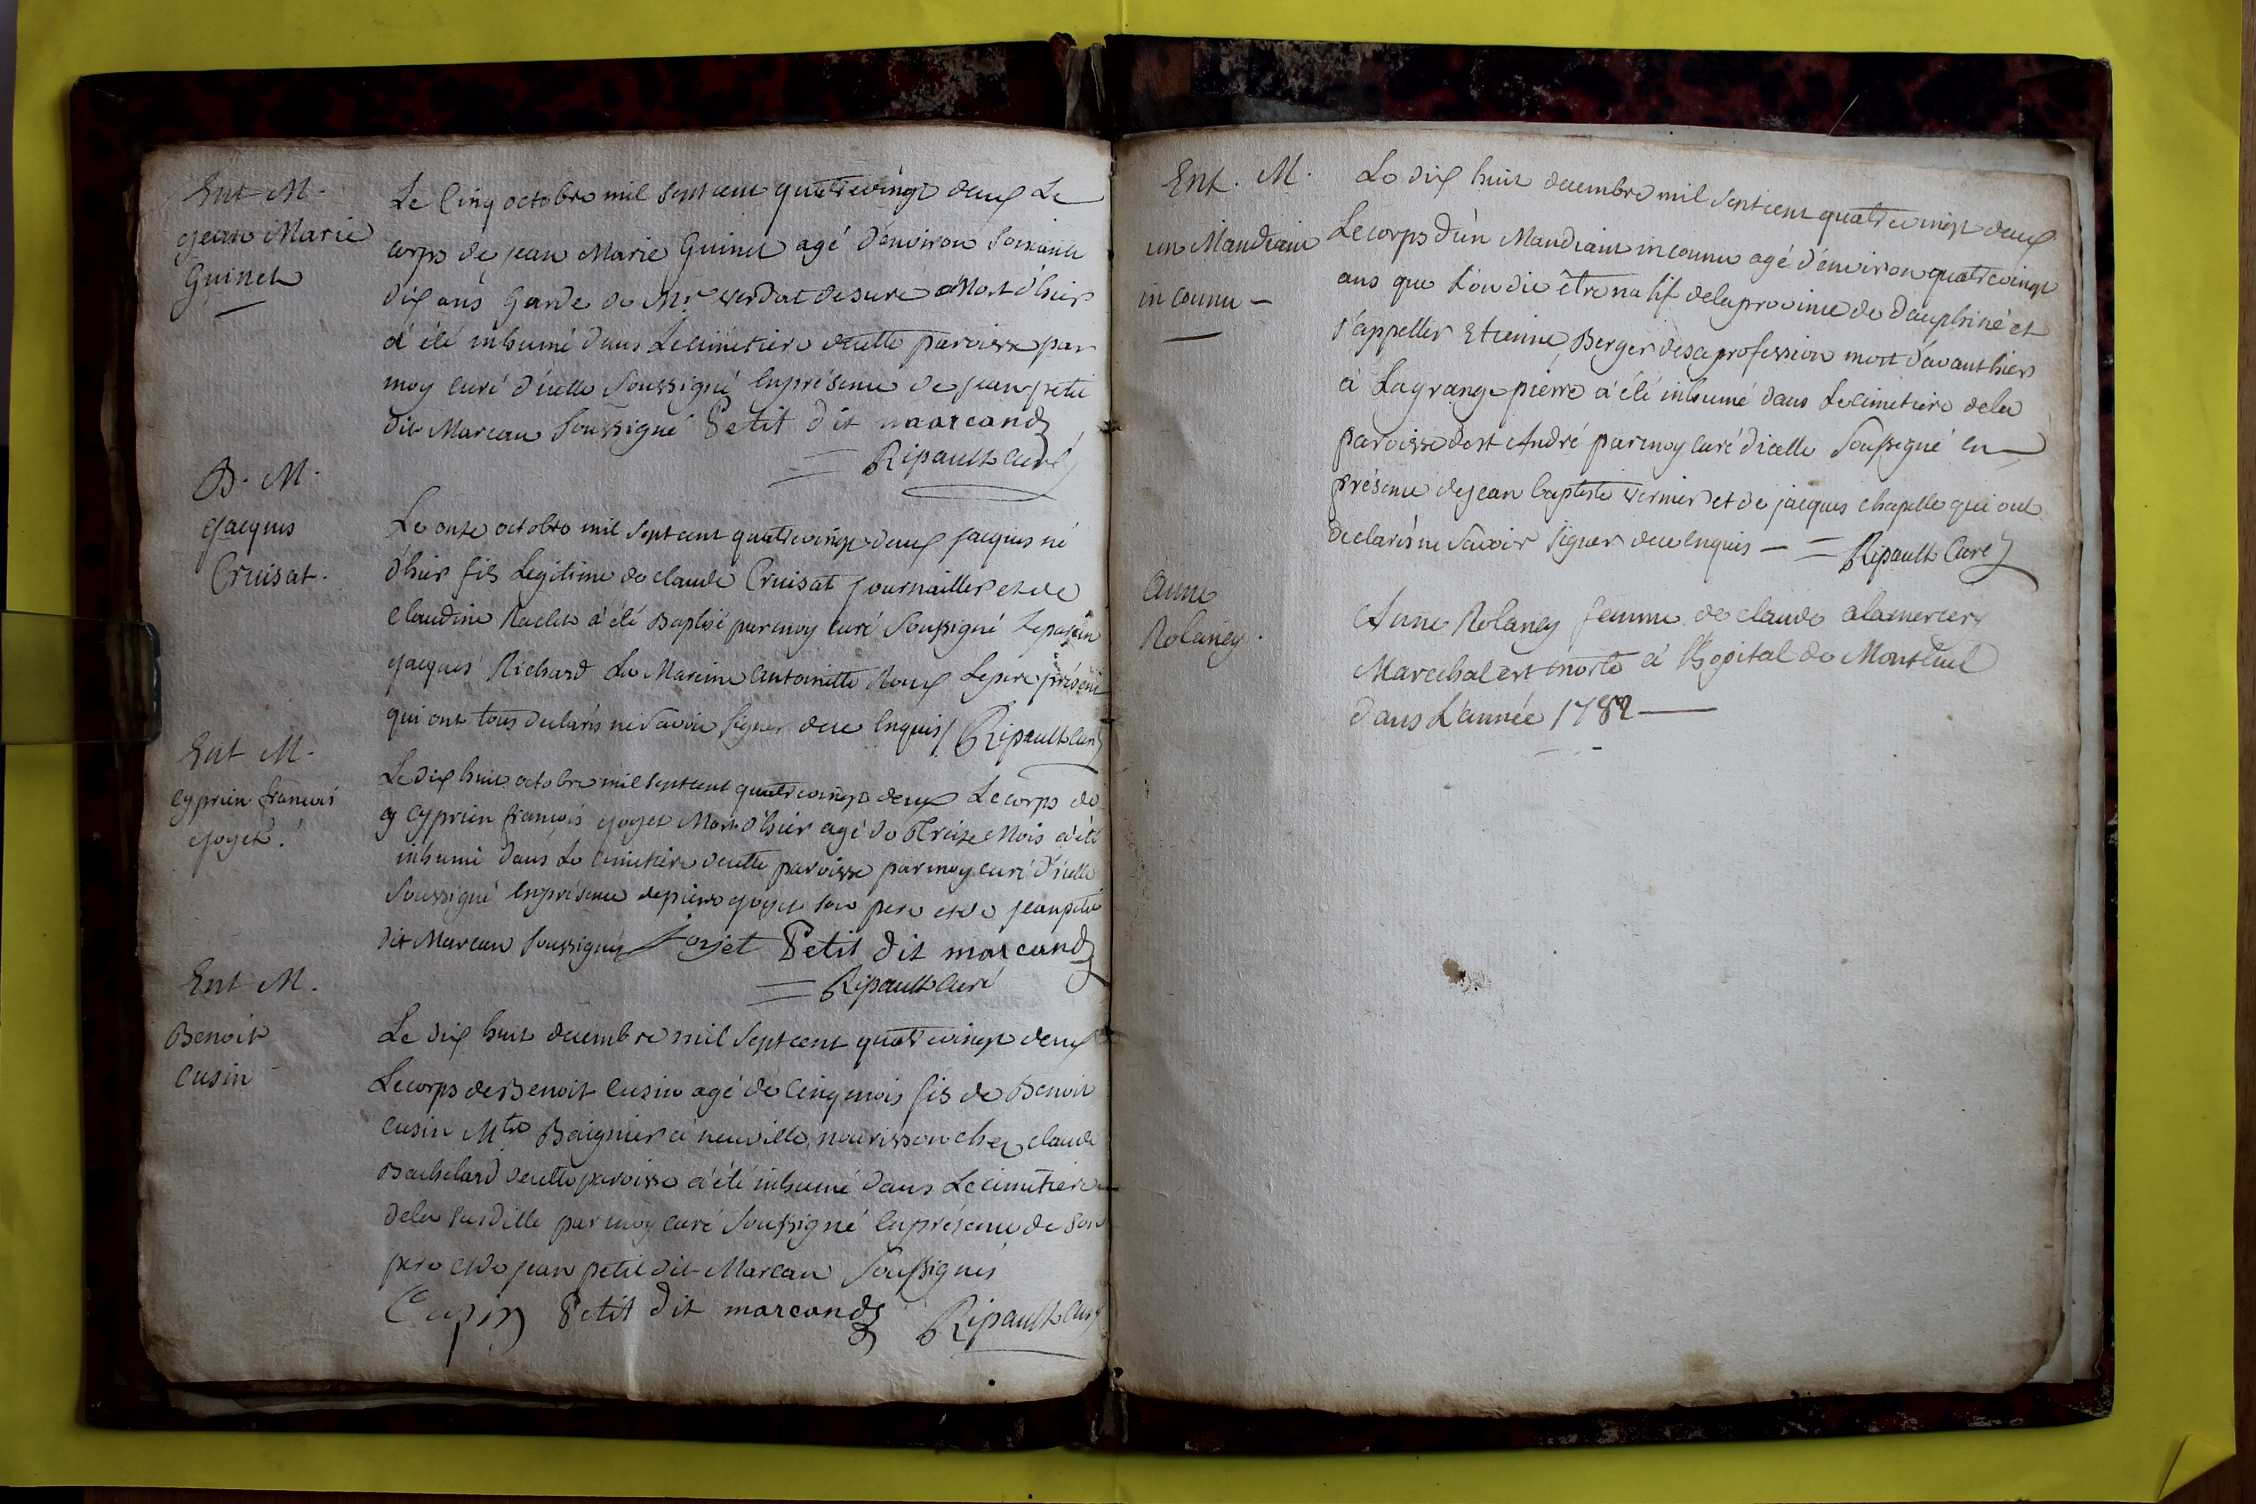 Ent M.
Jean Marie
Guinet
Le Cinq octobre mil sept cent quatrevingt deux Le
corps de jean Marie Guinet agé d'environ soixante
dix ans Garde de Mr. verdat de sure Mort d'hier
a été inhumé dans Le cimetiere decette paroisse par
moy curé d'icelle soussigné enpresence de jean petit
dit Marcau soussigné Petit dit marcand
Ripault Curé
B. M.
Jacques
Cruisat.
Le onze octobre mil sept cent quatrevingt deux jacques né
d'hier fils Legitime de claude Cruisat journaillier et de
claudine a été Baptisé par moy curé soussigné Le parein
jacques Richard La Mareine antoinette Roux Le pere présent
qui ont tous declarés ne savoir signer dece enquis Ripault Curé
Ent M.
cyprien françois
joyet.
Le dix huit octobre mil sept cent quatrevingt deux Le corps de
cyprien françois joyet Mort d'hier agé de treize Mois a été
inhumé dans Le cimetiere decette paroisse par moy curé d'icelle
soussigné enpresence depierre joyet son pere et de jean petit
dit Marcau soussignés Joyet Petit dit marcand
Ripault Curé
Ent M.
Benoit
cusin
Le dix huit decembre mil sept cent quatrevingt deux
Le corps de Benoit cusin agé de cinq mois fils de Benoit
cusin Mtre Baignier a neuville nourisson chez claude
Bachelard decette paroisse a été inhumé dans Le cimetiere
dela susditte par moy curé soussigné enpresence de son
pere et de jean petit dit Marcau soussignés
Cusin Petit dit marcand Ripault Curé
Ent. M.
un Mandiant
inconnu
Le dix huit decembre mil sept cent quatrevingt deux
Le corps d'un Mandiant inconnu agé d'environ quatrevingt
ans que l'on dit être natif dela province de Dauphiné et
s'appeller Etienne, Berger desa profession mort d'avanthier
a La grange pierre a été inhumé dans Le cimetiere dela
paroisse de st André par moy curé d'icelle soussigné en
présence de jean baptiste vernier et de jacques chapelle qui ont
declarés ne savoir signer dece enquis Ripault Curé
anne
Rolaney.
Anne Rolaney femme de claude alamercery
Marechal est morte a l'hopital de Montluel
dans L'année 1782